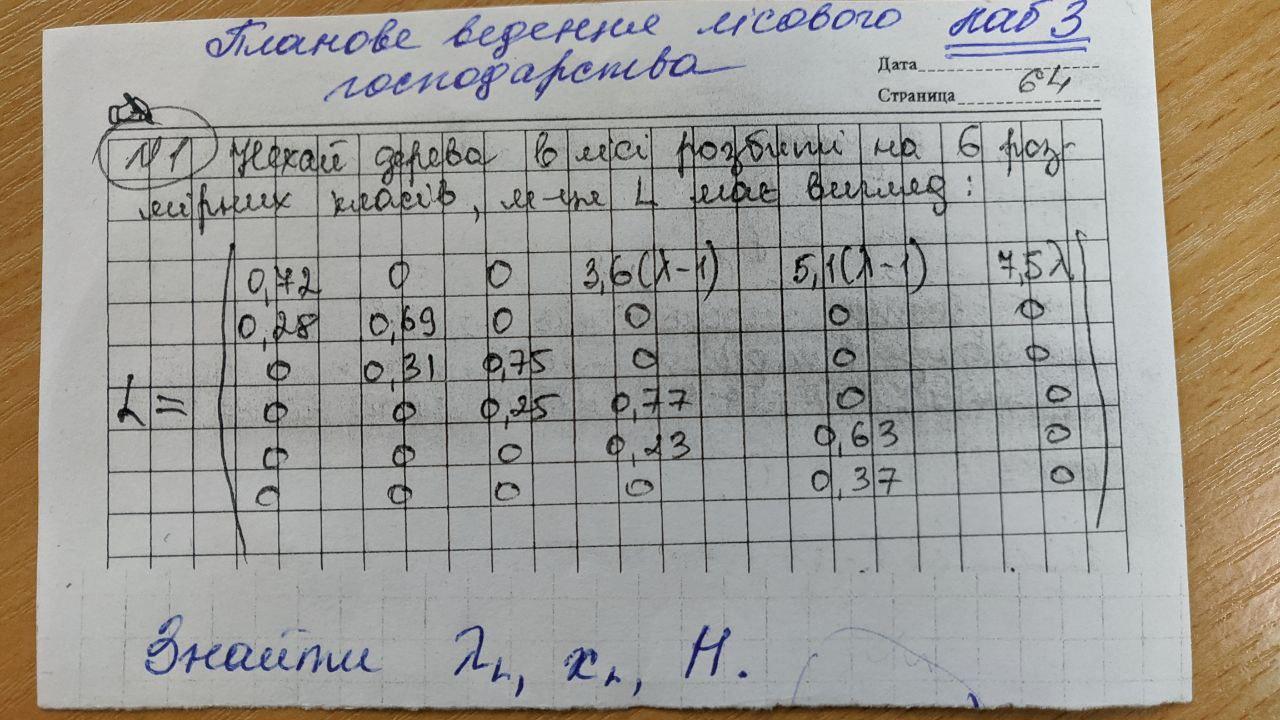 Планове ведення лісового лаб 3
господарства
Дата
Страница 64
№1 Нехай дерева в лісі розбиті на 6 роз-
мірних класів, м-ця L має вигляд:
0,72 0 0 3,6(λ-1) 5,1(λ-1) 7,5λ
0,28 0,69 0 0 0 0
0 0,31 0,75 0 0 0
L = 0 0 0,25 0,77 0 0
0 0 0 0,23 0,63 0
0 0 0 0 0,37 0
Знайти λL, xL, H.